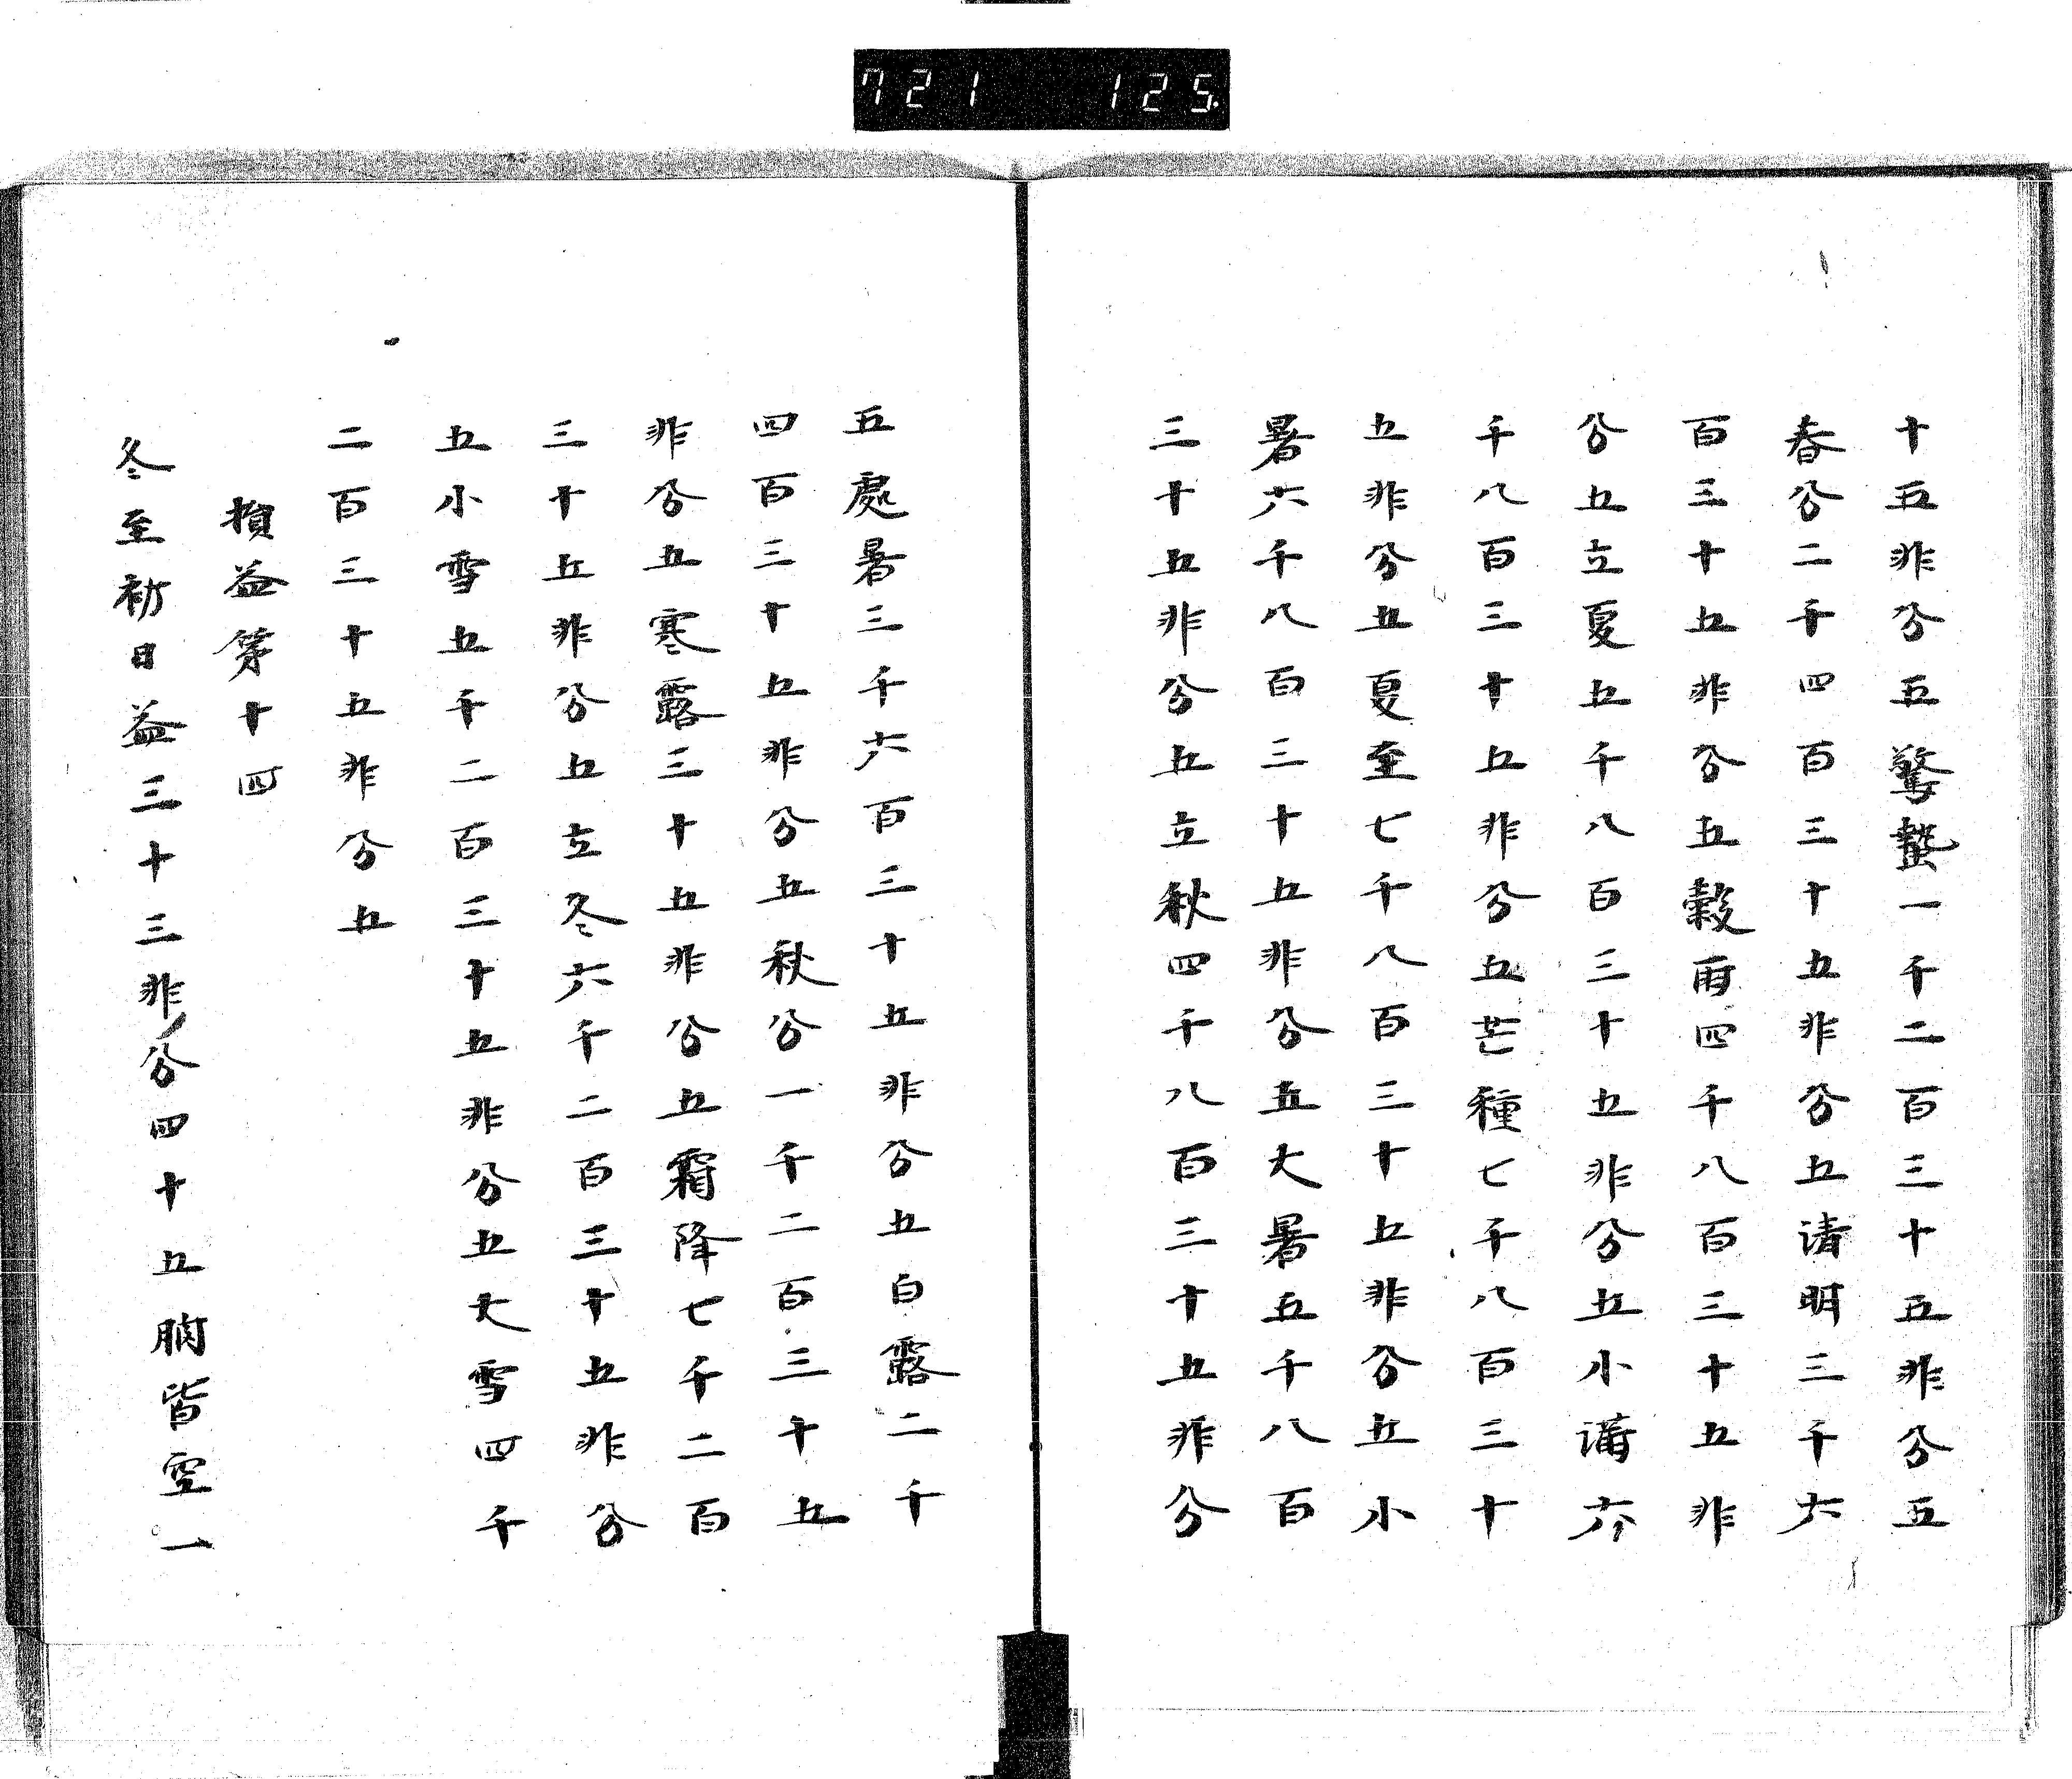 721 125
十五非分五驚蟄一千二百三十五非分五
春分二千四百三十五非分五清明三千六
百三十五非分五穀雨四千八百三十五非
分五立夏五千八百三十五非分五小満六
千八百三十五非分五芒種七千八百三十
五非分五夏至七千八百三十五非分五小
暑六千八百三十五非分五大暑五千八百
三十五非分五立秋四千八百三十五非分
五處暑三千六百三十五非分五白露二千
四百三十五非分五秋分一千二百三十五
非分五寒露三十五非分五霜降七千二百
三十五非分五立冬六千二百三十五非分
五小雪五千二百三十五非分五大雪四千
二百三十五非分五
損益第十四
冬至初日益三十三非分四十五朒皆空一